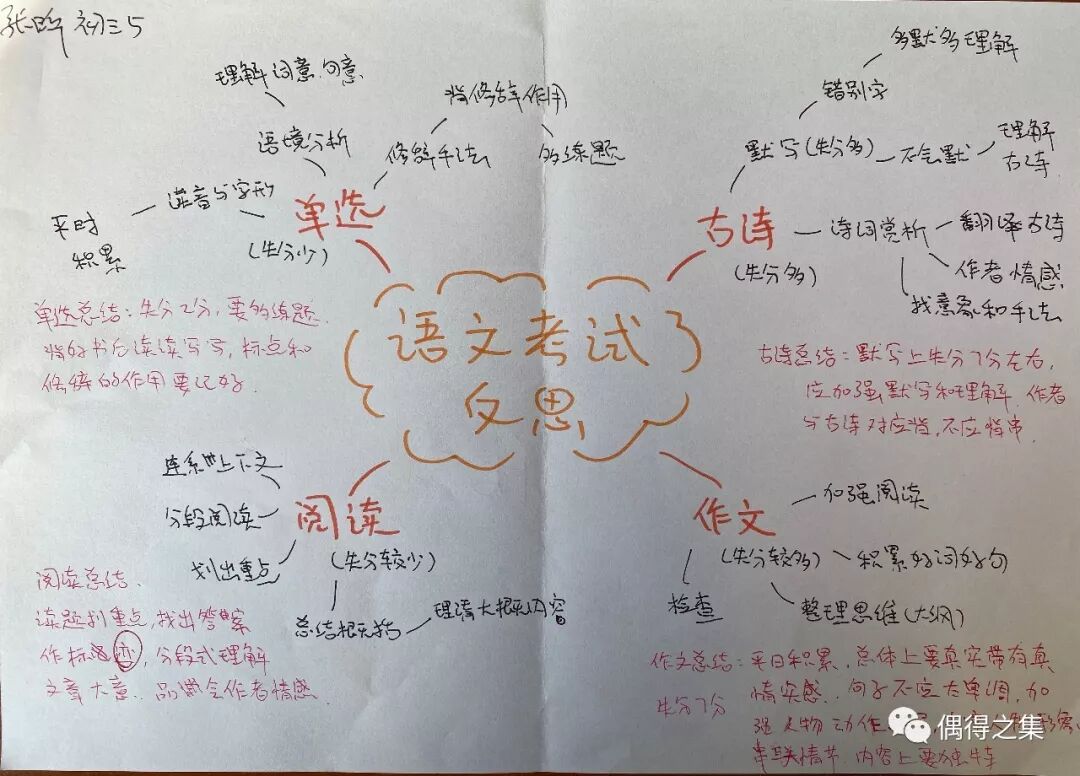 初三5
语文考试
反思
单选
(失分少)
理解词意.句意
语境分析
读音与字形
平时
积累
修辞手法
将修辞作用
多练题
单选总结：失分2分，要多练题.
将好书后读读写写，标点和
的作用要记好.
古诗
(失分多)
默写(失分多)
错别字
多默多理解
不会默
理解
古诗
诗词赏析
翻译古诗
作者情感
找意象和手法
古诗总结：默写上失分7分左右，
应加强默写和理解.作者
与古诗对应背，不应背串.
阅读
(失分较少)
连系上下文
分段阅读
划出重点
总结概括
理清大概内容
阅读总结.
读题划重点，找出答案
作标，分段式理解
文章大意.品作者情感
作文
(失分较多)
加强阅读
积累好词好句
整理思维(大纲)
检查
作文总结：平日积累，总体上要真实带有真
失分7分 情实感.句子不应太单调，加
强人物动作
串联情节.内容上要独特
偶得之集